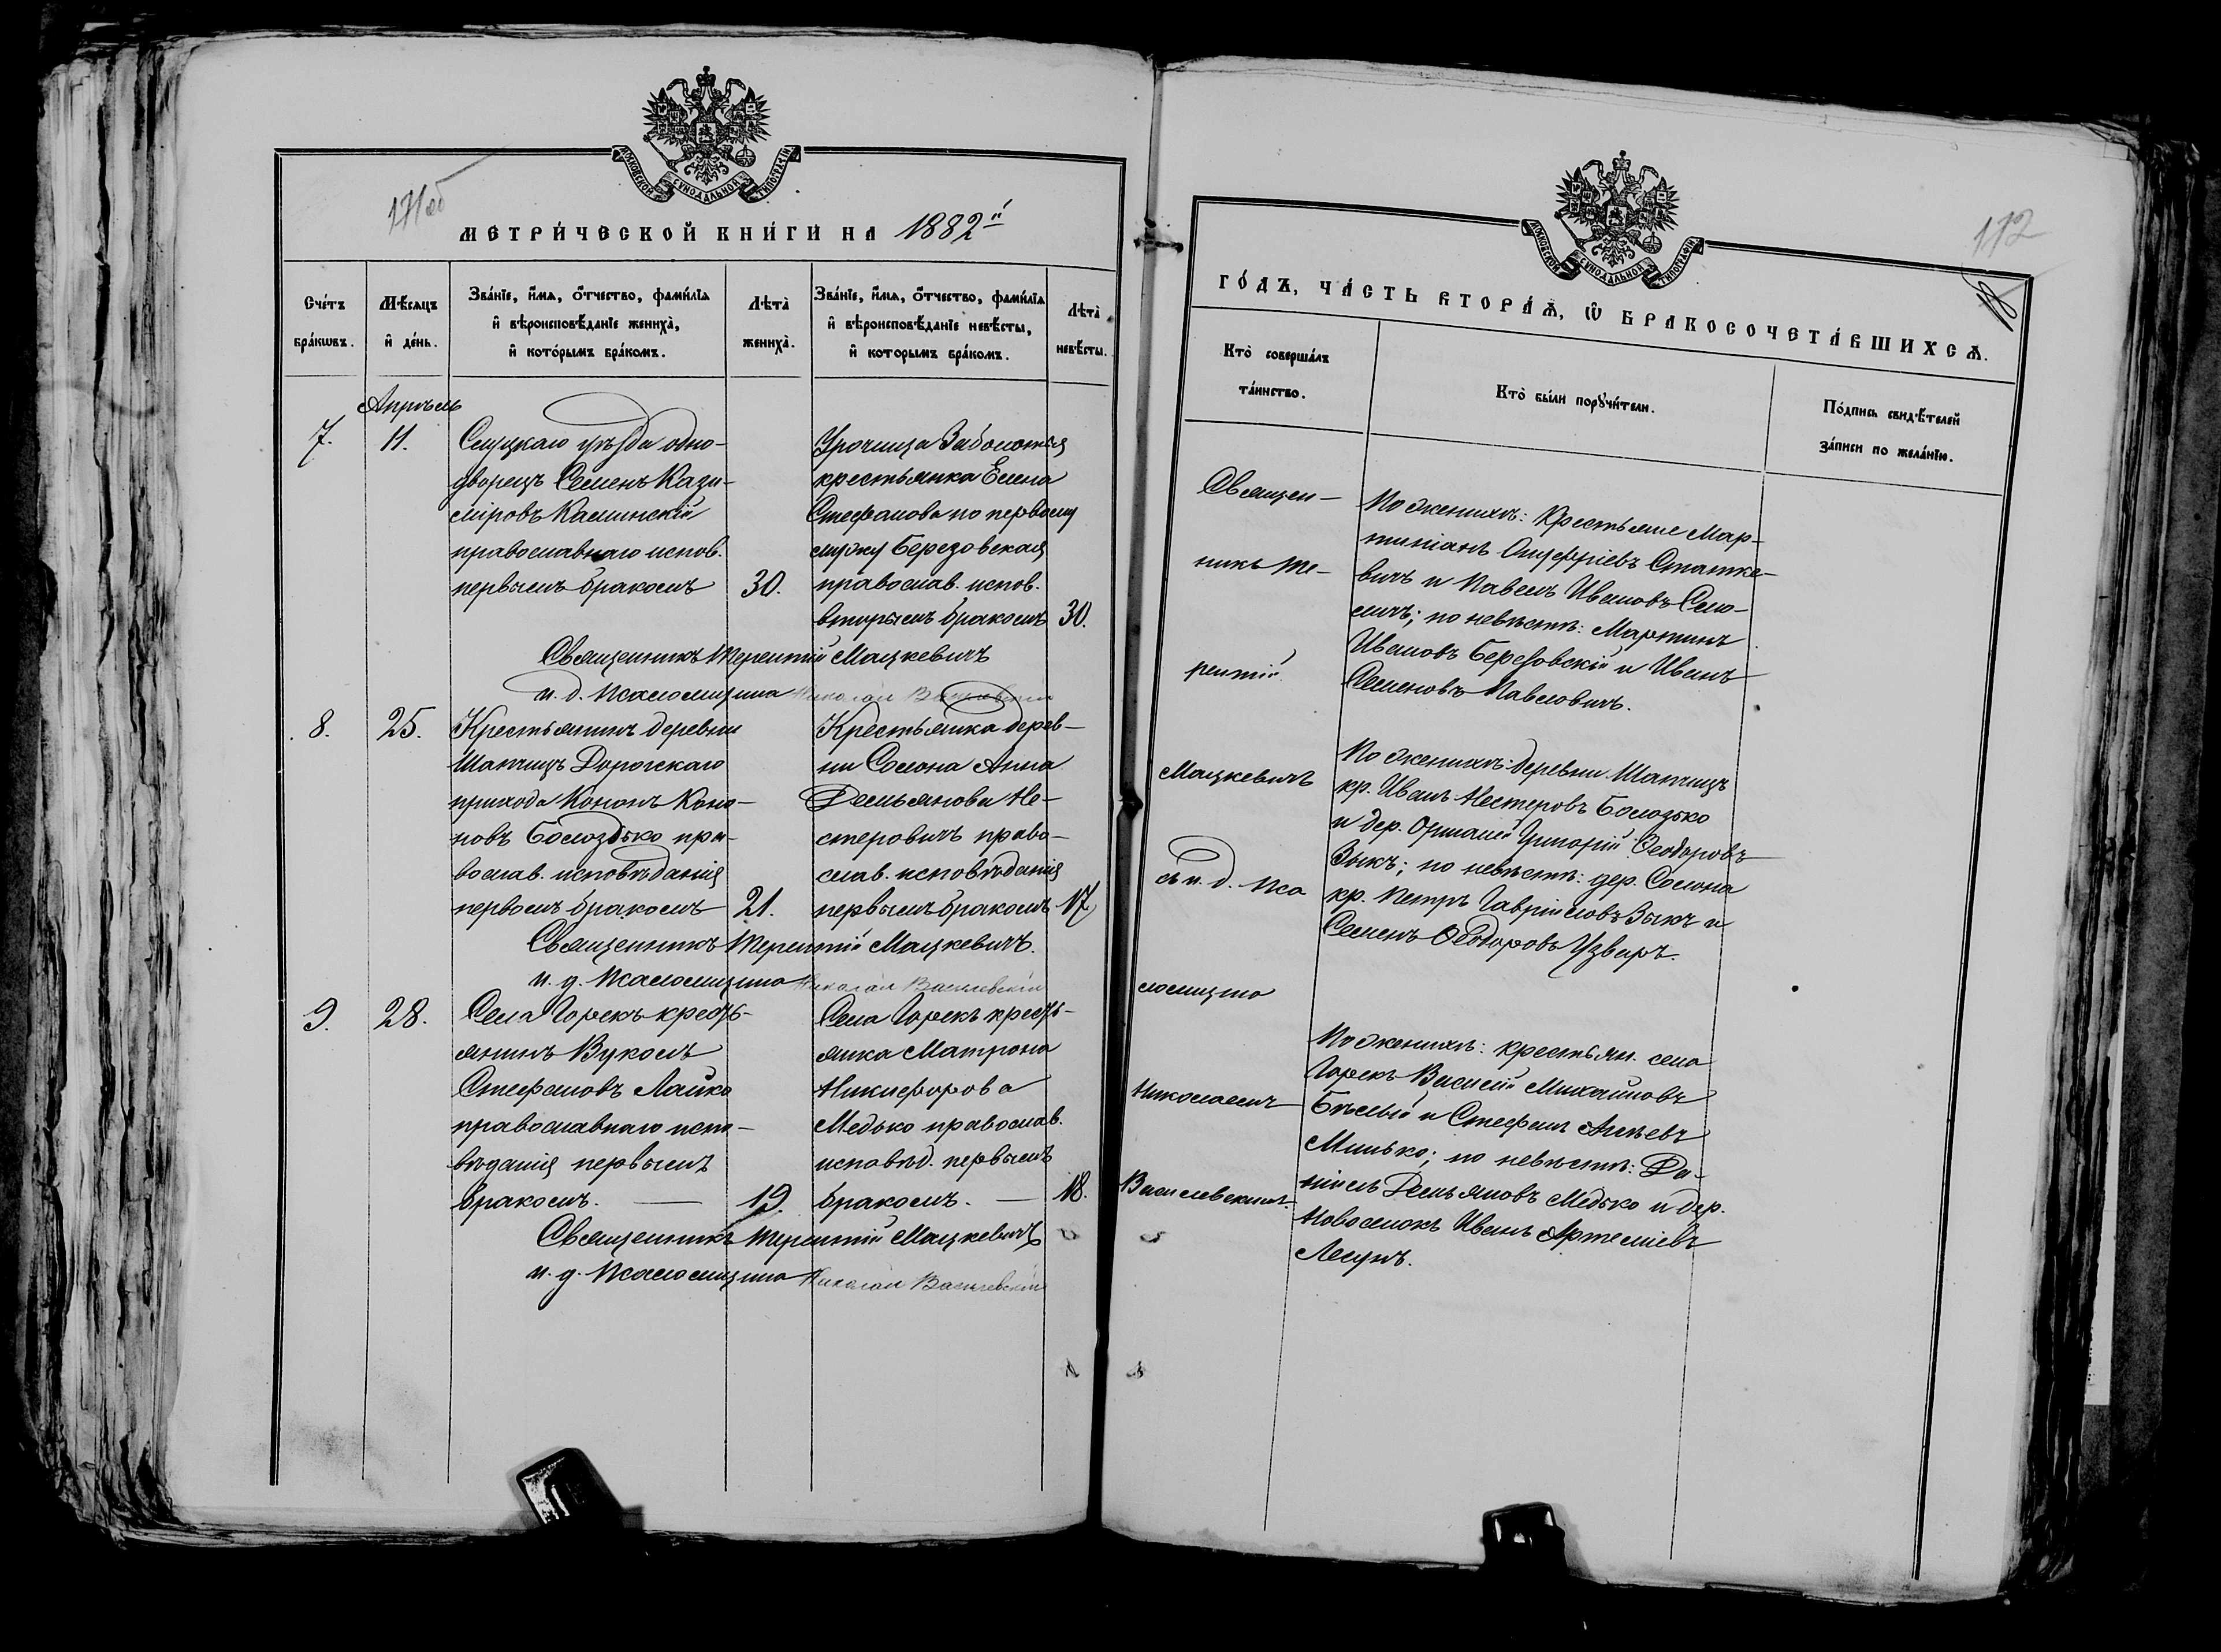 МОСКОВСКОЙ СѴНОДАЛЬНОЙ ТИПОГРАФІИ
171об
МЕТРИ́ЧЕСКОЙ КНИ́ГИ НА 1882й
Сче́тъ бра́кѡвъ.
Мѣ́сяцъ и҆ де́нь.
Зва́нїе, и҆́мя, ѻ҆́тчество, фами́лїя
и҆ вѣроисповѣ́данїе жениха̀,
и҆ кото́рымъ бра́комъ.
Лѣта̀ жениха̀.
Зва́нїе, и҆́мя, ѻ҆́тчество, фами́лїя
и҆ вѣроисповѣ́данїе невѣ́сты,
и҆ которымъ бра́комъ.
Лѣта̀ невѣ́сты.
Апрѣль
7.
11.
Слуцкаго уѣзда одно-
дворецъ Семенъ Кази-
міровъ Каминскій
православнаго испов.
первымъ бракомъ
30.
Урочища Заболотья
крестьянка Елена
Стефанова по первому
мужу Березовская
православ. испов.
вторымъ бракомъ
30.
Священникъ Терентій Мацкевичъ
и. д. Псаломщика Николай Василевскій
8.
25.
Крестьянинъ деревни
Шапчицъ Дорогскаго
прихода Кононъ Коно-
новъ Болозько пра-
вослав. исповѣданія
первымъ бракомъ
21.
Крестьянка дерев-
ни Солона Анна
Демьянова Не-
стеровичъ право-
слав. исповѣданія
первымъ бракомъ
17
Священникъ Терентій Мацкевичъ.
и. д. Псаломщика Николай Василевскій
9.
28.
Села Горекъ кресть-
янинъ Вуколъ
Стефановъ Лайко
православнаго испо-
вѣданія первымъ
бракомъ.
19.
Села Горекъ кресть-
янка Матрона
Никифорова
Медько православ.
исповѣд. первымъ
бракомъ.
18.
Священникъ Терентій Мацкевичъ
и. д. Псаломщика Николай Василевскій
МОСКОВСКОЙ СѴНОДАЛЬНОЙ ТИПОГРАФІИ
112
18
ГО́ДЪ, ЧА́СТЬ ВТОРА́Я, Ѡ҆ БРАКОСОЧЕТА́ВШИХСЯ.
Кто̀ соверша́лъ
та́инство.
Кто̀ бы́ли порꙋчи́тели.
По́дпись свидѣ́телей
за́писи по жела́нїю.
Священ-
никъ Те-
рентій
Мацкевичъ
съ и. д. Пса
ломщика
Николаемъ
Василевскимъ.
По женихѣ: Крестьяне Мар-
тиніанъ Онуфріевъ Статке-
вичъ и Павелъ Ивановъ
по невѣстѣ: Мартинъ
Ивановъ Березовскій и Иванъ
Семеновъ Павловичъ.
По женихѣ: деревни Шапчицъ
кр. Иванъ Нестеровъ Болозько
и дер. Григорій Ѳеодоровъ
Зыкъ; по невѣстѣ: дер. Солона
кр. Петръ Гавріиловъ Зыкъ и
Семенъ Ѳеодоровъ Узваръ.
По женихѣ: крестьян. села
Горекъ Василій Михайловъ
Бѣлый и Стефанъ Агѣевъ
Минько; по невѣстѣ: Да-
ніилъ Демьяновъ Медько и дер.
Новоселокъ Иванъ Артеміевъ
Легунъ.